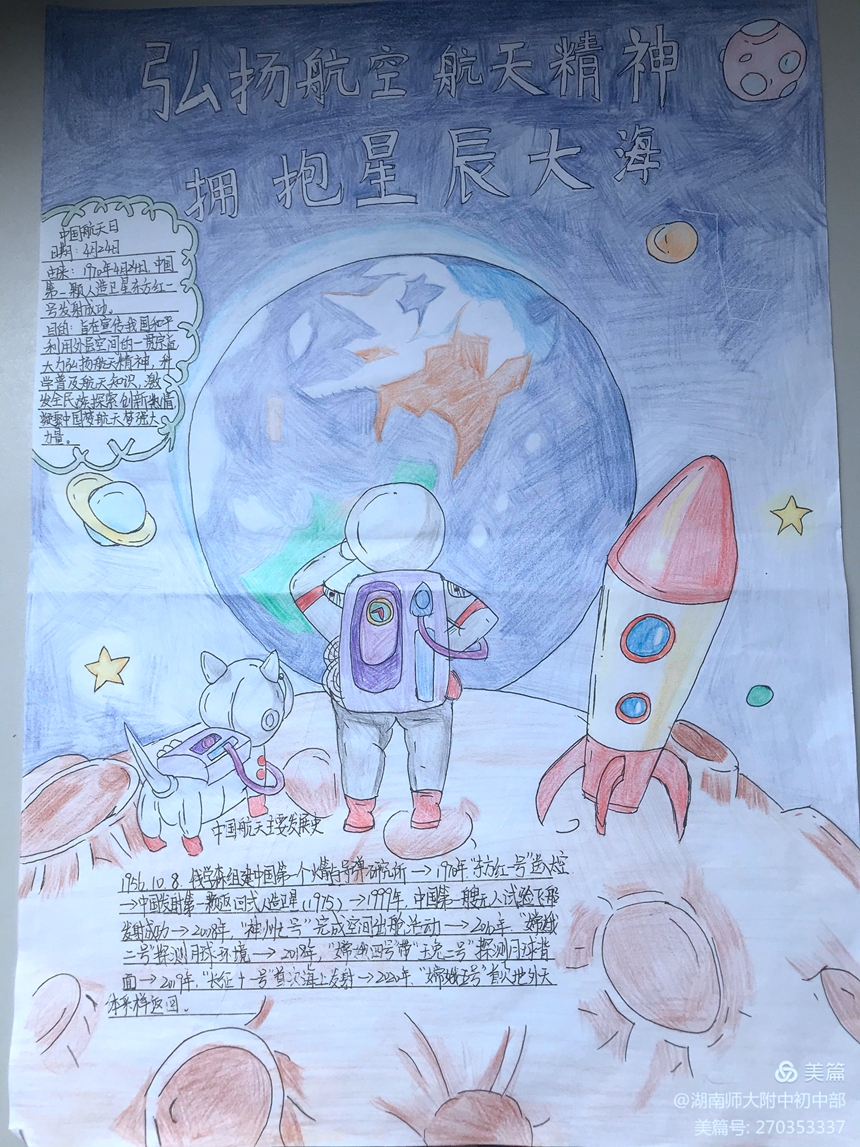 弘扬航空航天精神
拥抱星辰大海
中国航天日
日期：4月24日
由来：1970年4月24日，中国
第一颗人造卫星东方红一
号发射成功。
目的：旨在宣传我国和平
利用外层空间的一贯宗旨
大力弘扬航天精神，科
学普及航天知识，激
发全民族探索创新热情
凝聚中国梦航天梦强大
力量。
中国航天主要发展史
1956.10.8.钱学森组建中国第一个火箭导弹研究所→1970年"东方红一号"送入太空
→中国发射第一颗返回式人造卫星（1975）→1999年，中国第一艘无人试验飞船
发射成功→2008年，"神州七号"完成空间出舱活动→2010年，"嫦娥
二号"探测月球环境→2018年，"嫦娥四号"带"玉兔二号"探测月球背
面→2019年，"长征十一号"首次海上发射→2020年，"嫦娥五号"首次地外天
体采样返回。
美篇
@湖南师大附中初中部
美篇号: 270353337